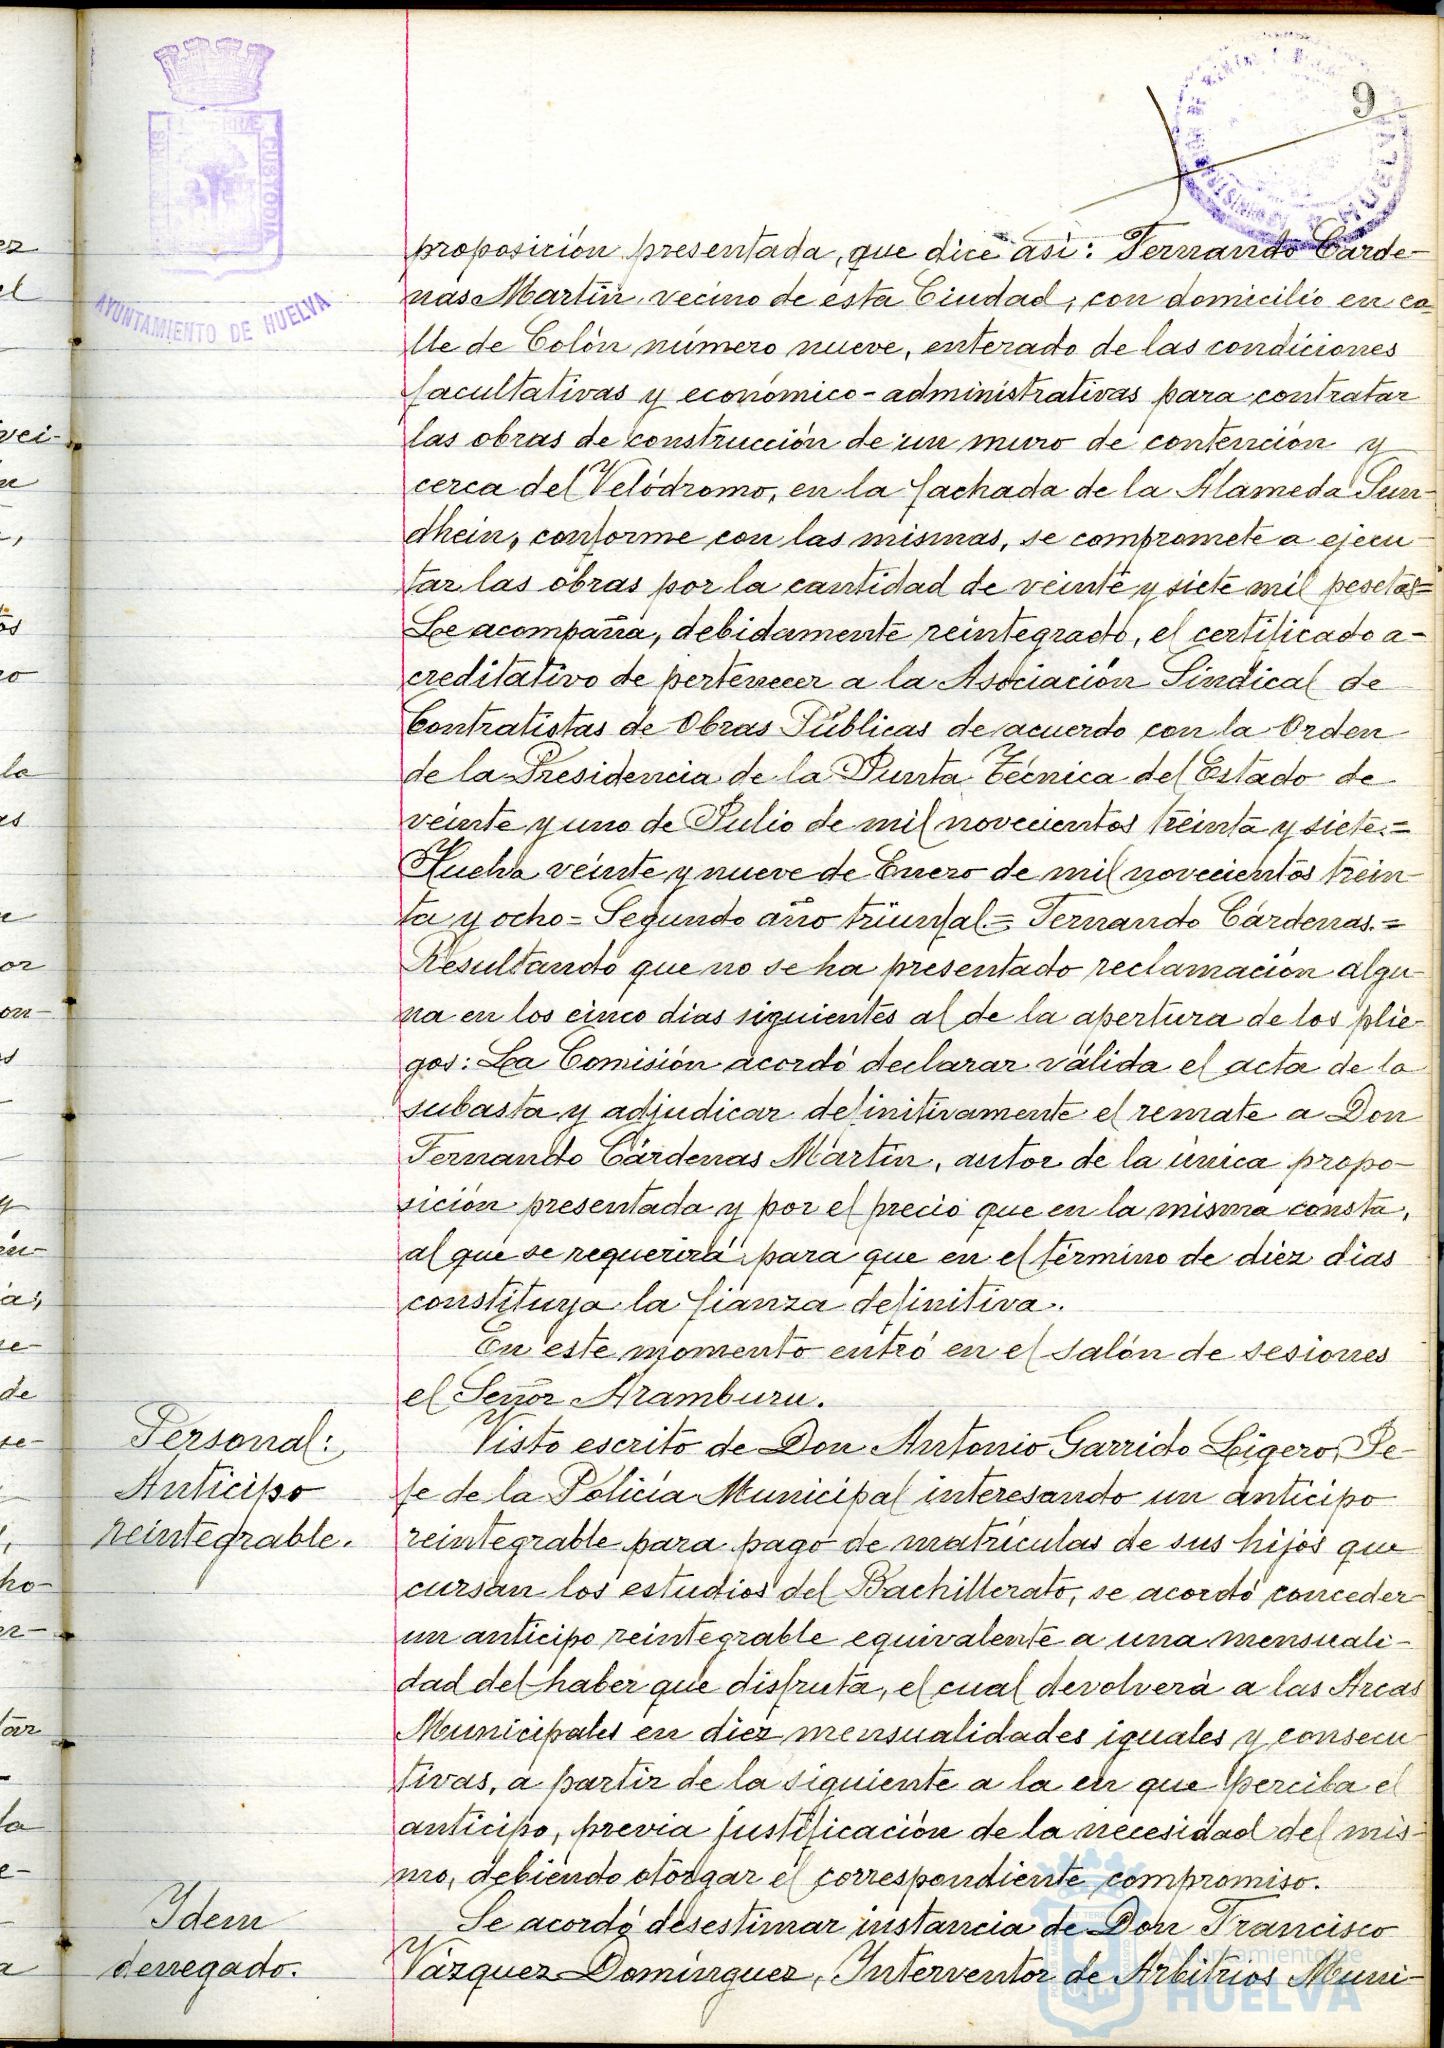 9
AYUNTAMIENTO DE HUELVA
CUSTODIA
HUELVA
proposición presentada, que dice así: Fernando Carde-
nas Martín, vecino de ésta Ciudad, con domicilio en ca-
lle de Colón número nueve, enterado de las condiciones
facultativas y económico-administrativas para contratar
las obras de construcción de un muro de contención y
cerca del Velódromo, en la fachada de la Alameda Sun-
dhein, conforme con las mismas, se compromete a ejecu-
tar las obras por la cantidad de veinte y siete mil pesetas=
Se acompaña, debidamente reintegrado, el certificado a-
creditativo de pertenecer a la Asociación Sindical de
Contratistas de Obras Públicas de acuerdo con la Orden
de la Presidencia de la Junta Técnica del Estado de
veinte y uno de Julio de mil novecientos treinta y siete.=
Huelva veinte y nueve de Enero de mil novecientos trein-
ta y ocho= Segundo año triunfal.= Fernando Cárdenas.=
Resultando que no se ha presentado reclamación algu-
na en los cinco dias siguientes al de la apertura de los plie-
gos: La Comisión acordó declarar válida el acta de la
subasta y adjudicar definitivamente el remate a Don
Fernando Cárdenas Martín, autor de la única propo-
sición presentada y por el precio que en la misma consta,
al que se requerirá para que en el término de diez dias
constituya la fianza definitiva.
En este momento entró en el salón de sesiones
el Señor Aramburu.
Personal:
Anticipo
reintegrable.
Visto escrito de Don Antonio Garrido Ligero, Je-
fe de la Policía Municipal interesando un anticipo
reintegrable para pago de matrículas de sus hijos que
cursan los estudios del Bachillerato, se acordó conceder
un anticipo reintegrable equivalente a una mensuali-
dad del haber que disfruta, el cual devolverá a las Arcas
Municipales en diez mensualidades iguales y consecu-
tivas, a partir de la siguiente a la en que perciba el
anticipo, previa justificación de la necesidad del mis-
mo, debiendo otorgar el correspondiente compromiso.
Idem
denegado.
Se acordó desestimar instancia de Don Francisco
Vázquez Domínguez, Interventor de Arbitrios Muni-
Ayuntamiento de
HUELVA